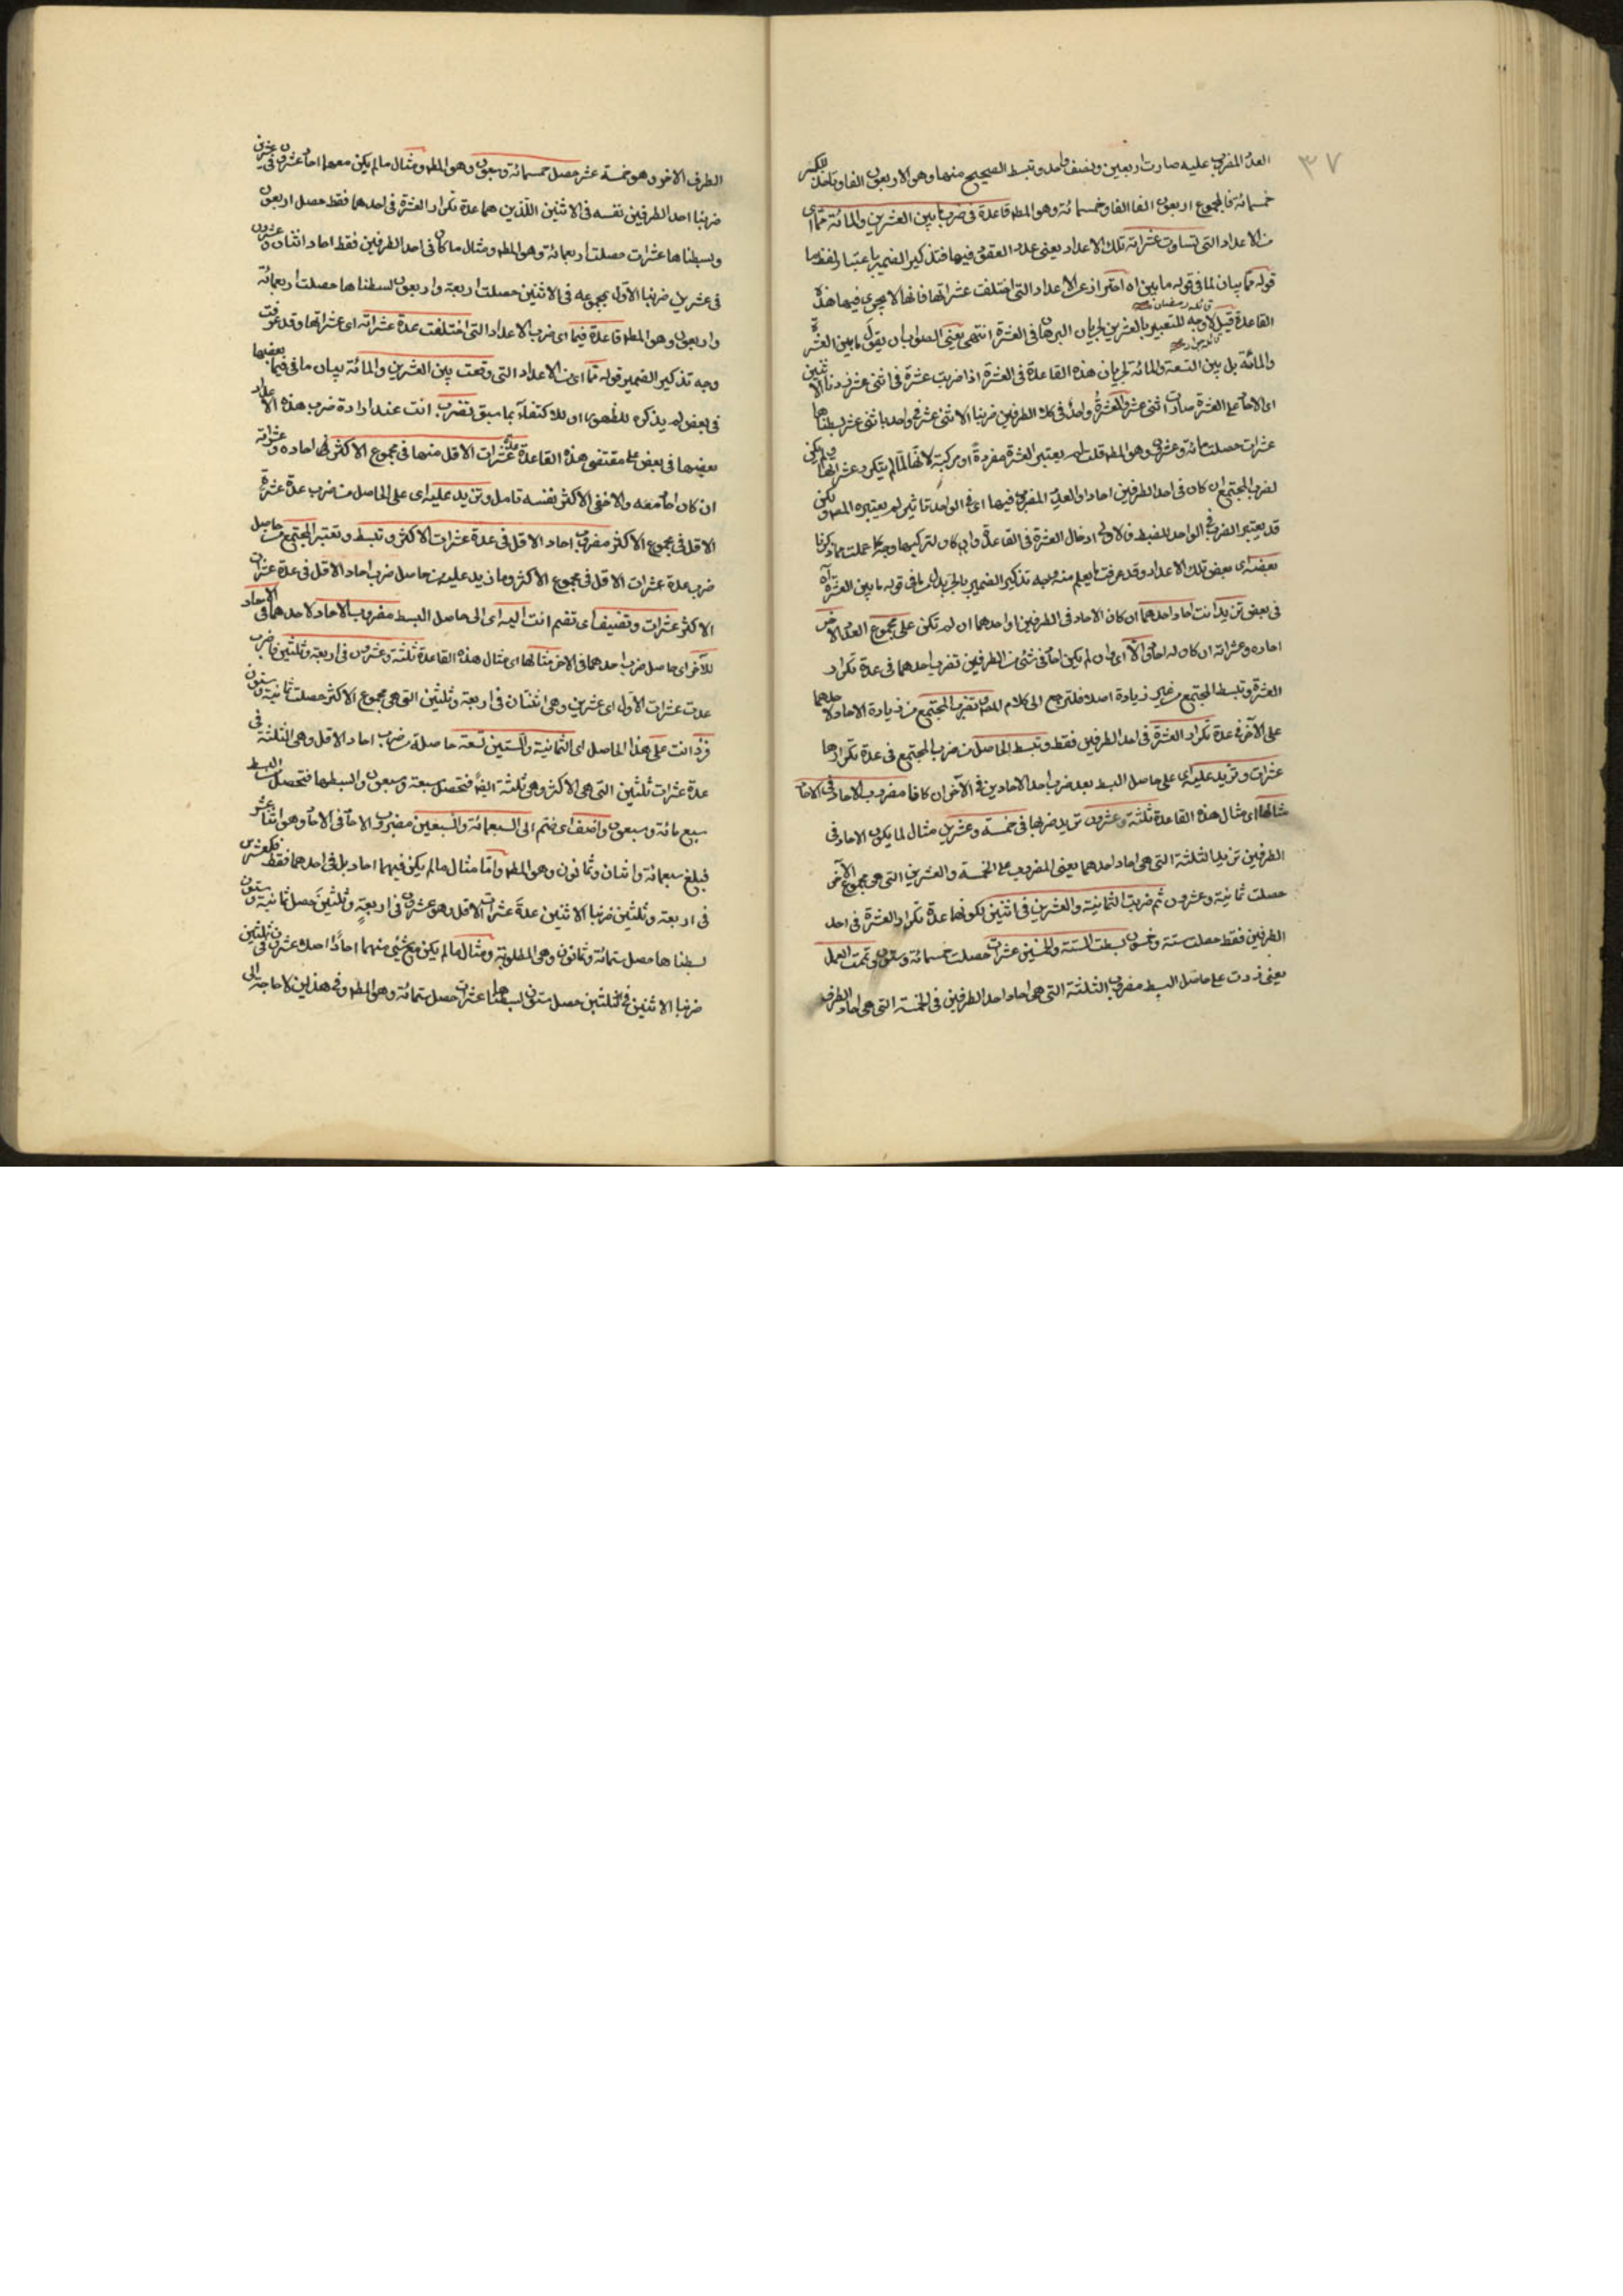 ٣٧
العدد المضروب عليه صارت اربعين ونصف واحد وتبسط الصحيح منها وهو الاربعون الفا وتاخذ للكسر
خمسمائة فالمجموع اربعون الفا وخمسمائة وهو المط قاعدة فى ضرب ما بين العشرين والمائة مما اى
من الاعداد التى تساوت عشراته تلك الاعداد يعنى عدد العقود فيها فتذكير الضمير باعتبار لفظ ما
قوله مما بيان لما فى قوله ما بين اه احتراز عن الاعداد التى اختلفت عشراتها فانها لا يجرى فيها هذه
القاعدة قيل لا وجه للتعبير بالعشرين لجريان البرهان فى العشرة انتهى يعنى الصواب ان يقول ما بين العشرة
والمائة بل بين التسعة والمائة لجريان هذه القاعدة فى العشرة اذا ضربت عشرة فى اثنى عشر زدنا الاثنين
اى الاحاد على العشرة صارت اثنى عشر والعشرة واحد فى كلا الطرفين ضربنا الاثنى عشر فى واحد باثنى عشر بسطناها
عشرات حصلت مائة وعشرون وهو المط قلت لم يعتبر العشرة مفردة او مركبة لانها لما لم يتكرر عشراتها
لضرب المجتمع ان كان فى احد الطرفين احاد او العدد المضروب فيها اى فى الواحد تاثير لم يعتبره المص
قد يعتبر الضرب فى الواحد للضبط فالاولى ادخال العشرة فى القاعدة وان كان لتركيبها وجه كما عملت مما ذكرنا
بعضه اى بعض تلك الاعداد وقد عرفت ما يعلم منه وجه تذكير الضمير ما فى قوله ما بين العشرة اه
فى بعض تزيد انت احاد احدهما ان كان الاحاد فى الطرفين او احدهما ان لم تكن على مجموع العدد الاخر
احاده وعشراته ان كان له احاد والا اى وان لم يكن احاد فى شئ من الطرفين تضرب احدهما فى عدة تكرار
العشرة وتبسط المجتمع من غير زيادة اصلا فلنرجع الى كلام المص وتضرب المجتمع من زيادة الاحاد لاحدهما
على الآخر فى عدة تكرار العشرة فى احد الطرفين فقط وتبسط الحاصل من ضرب المجتمع فى عدة تكرارها
عشرات وتزيد عليه اى على حاصل البسط بعد ضرب احد الاحادين فى الآخر ان كانا مضروب الاحاد فى الاحاد
مثالها اى مثال هذه القاعدة ثلثة وعشرون تريد ضربها فى خمسة وعشرين مثال لما يكون الاحاد فى
الطرفين تزيد الثلثة التى هى احاد احدهما يعنى المضروب على الخمسة والعشرين التى هى مجموع الآخر
حصلت ثمانية وعشرون ثم ضربت الثمانية والعشرين فى اثنين لكونها عدة تكرار العشرة فى احد
الطرفين فقط حصلت ستة وخمسون بسطت الستة والخمسين عشرات حصلت خمسمائة وستون وتممت العمل
يعنى زدت على حاصل البسط مضروب الثلثة التى هى احاد احد الطرفين فى الخمسة التى هى احاد الطرف
الطرف الاخر وهو خمسة عشر حصل خمسمائة وسبعون وهو المط ومثال ما لم يكن معهما احاد عشرون فى عشرين
ضربنا احد الطرفين نفسه فى الاثنين اللذين هما عدة تكرار العشرة فى احدهما فقط حصل اربعون
وبسطناها عشرات حصلت اربعمائة وهو المط ومثال ما كان فى احد الطرفين فقط احاد اثنان وعشرون
فى عشرين ضربنا الاول بمجموعه فى الاثنين حصلت اربعة واربعون بسطناها حصلت اربعمائة
واربعون وهو المط قاعدة فيما اى ضرب الاعداد التى اختلفت عدة عشراته اى عشراتها وقد عرفت
وجه تذكير الضمير قوله مما اى من الاعداد التى وقعت بين العشرين والمائة بيان ما فى فيما بعضها
فى بعض لم يذكره للظهور او للاكتفاء بما سبق تضرب انت عند ارادة ضرب هذه الاعداد
بعضها فى بعض على مقتضى هذه القاعدة عدة عشرات الاقل منها فى مجموع الاكثر اى احاده وعشراته
ان كان احاد معه والا ففى الاكثر نفسه تامل وتزيد عليه اى على الحاصل من ضرب عدة عشرة
الاقل فى مجموع الاكثر مضروب احاد الاقل فى عدة عشرات الاكثر وتبسط وتعتبر المجتمع من حاصل
ضرب عدة عشرات الاقل فى مجموع الاكثر وما زيد عليه من حاصل ضرب احاد الاقل فى عدة عشرات
الاكثر عشرات وتضيف اى تضم انت اليه اى الى حاصل البسط مضروب الاحاد لاحدهما فى الاحاد
للآخر اى حاصل ضرب احدهما فى الاخر مثالها اى مثال هذه القاعدة ثلثة وعشرون فى اربعة وثلثين فاضرب
عدت عشرات الاول اى عشرين وهى اثنان فى اربعة وثلثين التى هى مجموع الاكثر حصلت ثمانية وستون
فزد انت على هذا الحاصل اى الثمانية والستين تسعة حاصلة من ضرب احاد الاقل وهى الثلثة فى
عدة عشرات ثلثين التى هى الاكثر وهى ثلثة ايضا فتحصل سبعة وسبعون وابسطها فتحصل من البسط
سبعمائة وسبعون واضف اى ضم الى السبعمائة والسبعين مضروب الاحاد فى الاحاد وهو اثنا عشر
فبلغ سبعمائة واثنان وثمانون وهو المط واما مثال ما لم يكن فيهما احاد بل فى احدهما فقط فكعشرين
فى اربعة وثلثين ضربنا الاثنين عدة عشرات الاقل وهو عشرون فى اربعة وثلثين حصل ثمانية وستون
بسطناها حصل ستمائة وثمانون وهى المطلوبة ومثال ما لم يكن مع شئ منهما احاد عشرون فى ثلثين
ضربنا الاثنين فى ثلثين حصل ستون بسطناها عشرات حصل ستمائة وهو المط وفى هذين لا حاجة الى